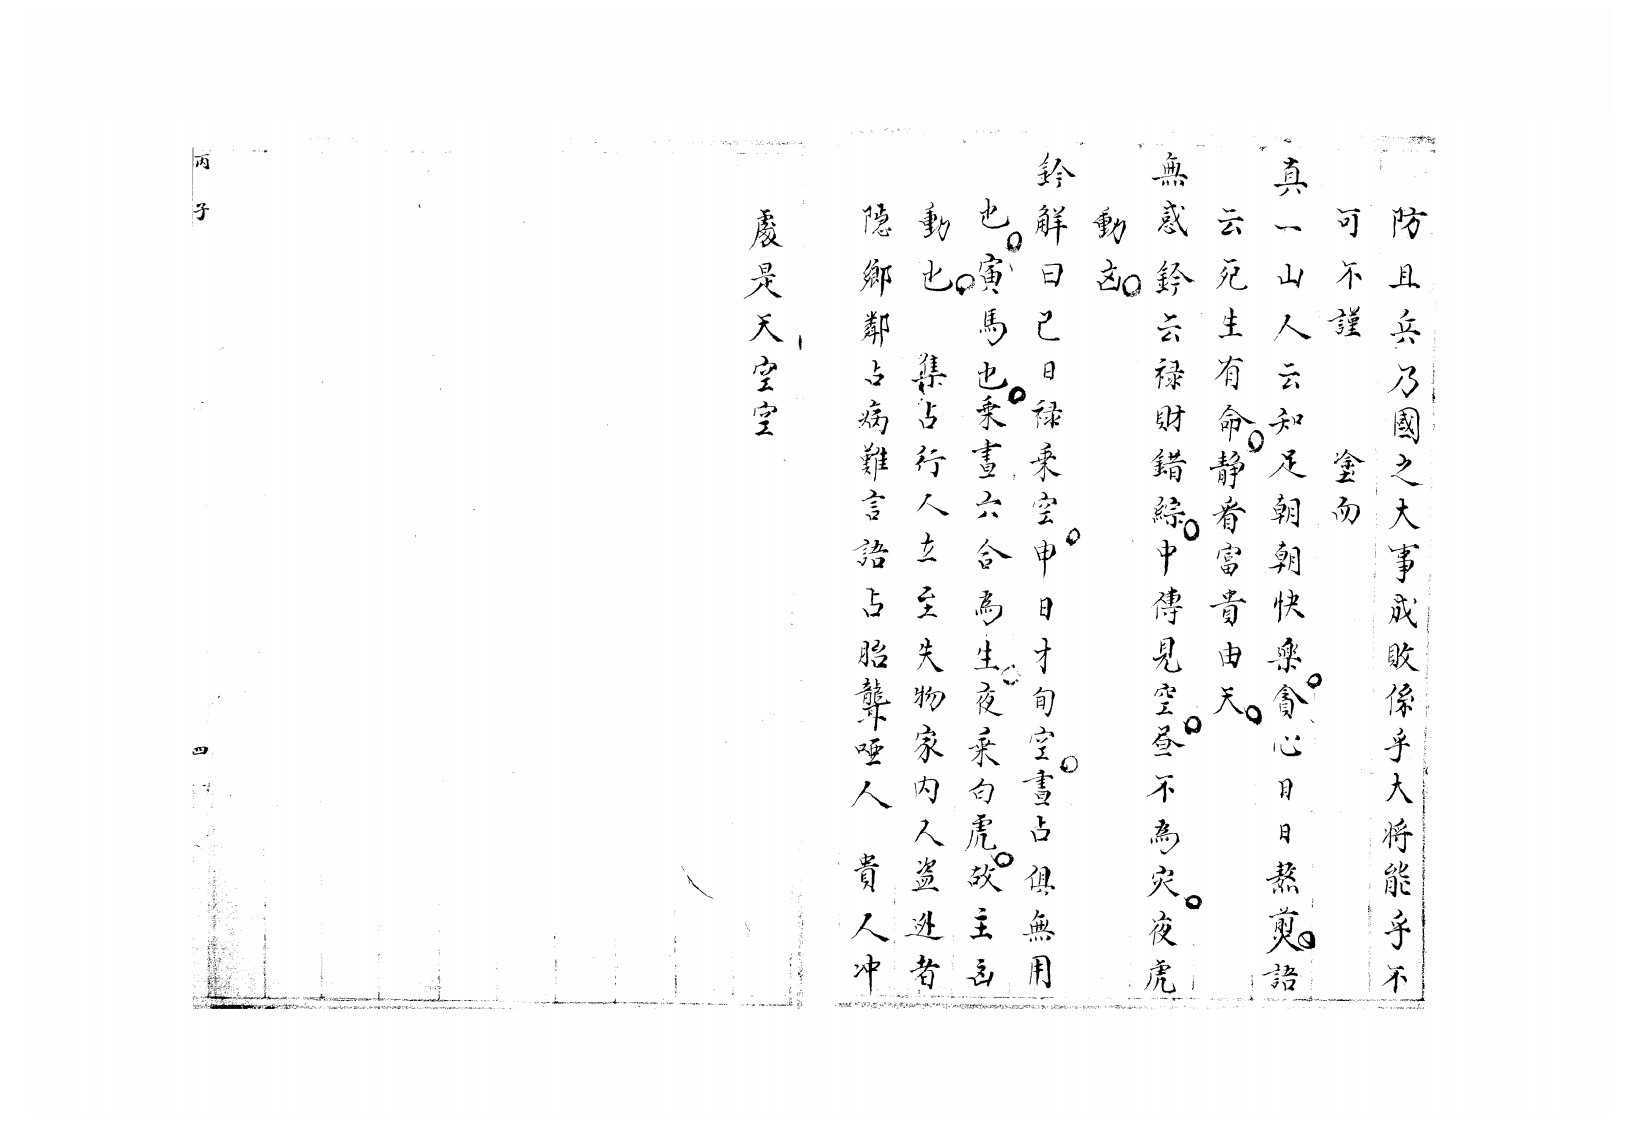 防且兵乃國之大事成敗係乎大将能乎不
可不謹　　塗而
真一山人云知足朝朝快樂貪心日日熬煎語
云死生有命静看富貴由天
無惑鈐云禄財錯綜中傳見空昼不為灾夜虎
動凶
鈐解曰已日禄乗空申日才旬空晝占俱無用
也寅馬也乗晝六合為生夜乘白虎故主凶
動也　集占行人立至失物家内人盗逃者
隠鄉鄰占病難言語占胎聾啞人　貴人冲
處是天空空
丙子
四